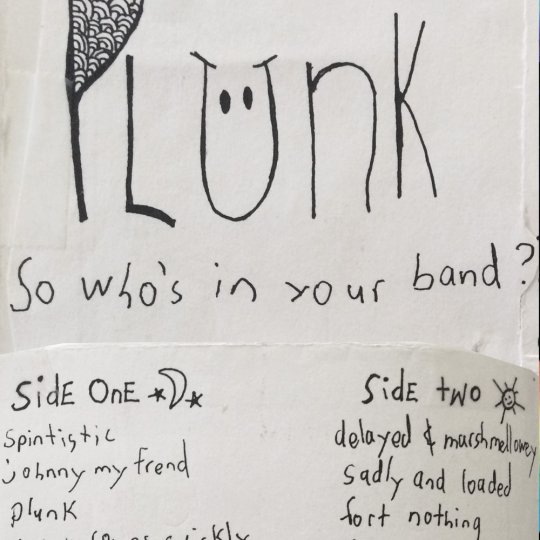 PLUnK
So who's in your band?
SidE OnE
Spintistic
johnny my frend
plunk
SidE two
delayed & marshmellowey
sadly and loaded
fort nothing